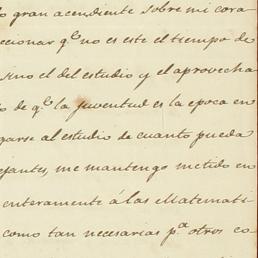 o gran acendiente sobre mi cora
ccionar q.e no es este el tiempo de
sino el del estudio y el aprovecha
o de q.e la juventud es la epoca en
garse al estudio de cuanto pueda
ejantes, me mantengo metido en
enteramente á las Matemati
como tan necesarias p.a otros co